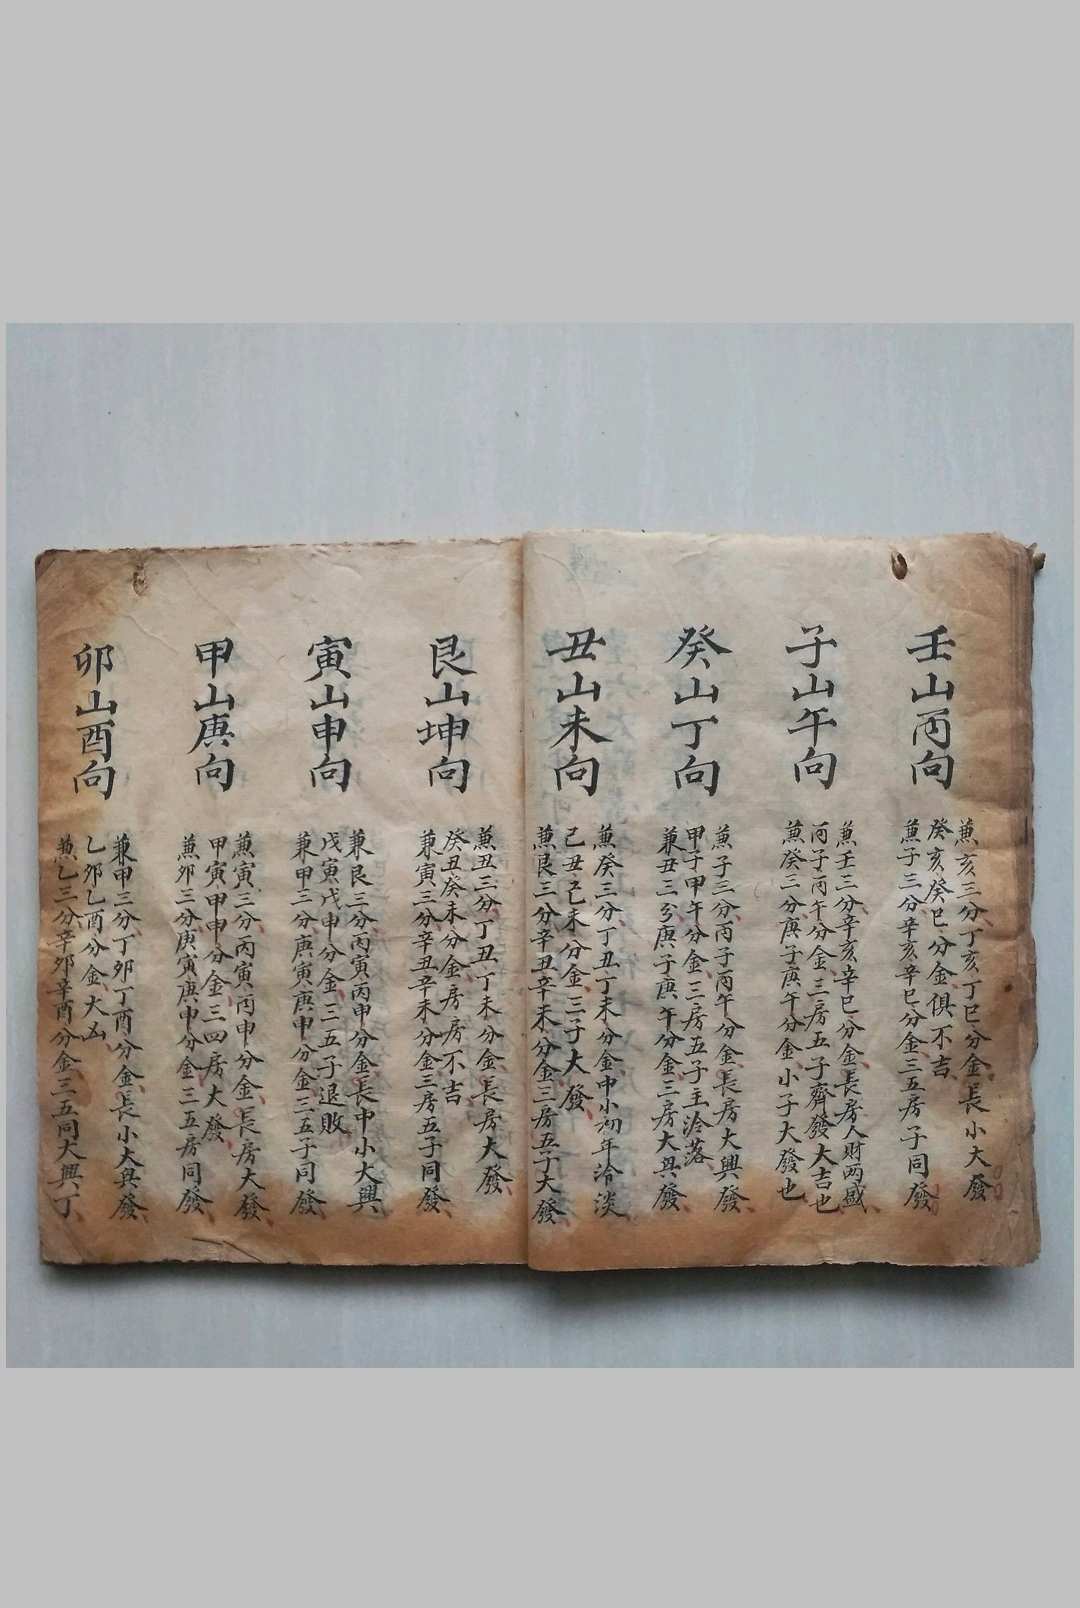 壬山丙向
兼亥三分丁亥丁巳分金長小大發
癸亥癸巳分金俱不吉
兼子三分辛亥辛巳分金三五房子同發
子山午向
兼壬三分辛亥辛巳分金長房人財兩盛
丙子丙午分金三房五子齊發大吉也
兼癸三分庚子庚午分金小子大發也
癸山丁向
兼子三分丙子丙午分金長房大興發
甲子甲午分金三房五子主冷落
兼丑三分庚子庚午分金三房大興發
丑山未向
兼癸三分丁丑丁未分金中小初年冷淡
己丑己未分金三子大發
兼艮三分辛丑辛未分金三房五子大發
艮山坤向
兼丑三分丁丑丁未分金長房大發
癸丑癸未分金房房不吉
兼寅三分辛丑辛未分金三房五子同發
寅山申向
兼艮三分丙寅丙申分金長中小大興
戊寅戊申分金三五子退敗
兼甲三分庚寅庚申分金三五子同發
甲山庚向
兼寅三分丙寅丙申分金長房大發
甲寅甲申分金三四房大發
兼卯三分庚寅庚申分金三五房同發
卯山酉向
兼甲三分丁卯丁酉分金長小大興發
乙卯乙酉分金大凶
兼乙三分辛卯辛酉分金三五同大興丁